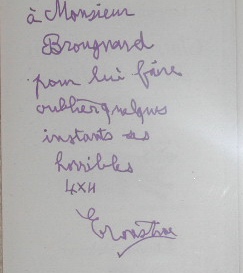 à Monsieur
Brougnard
pour lui faire
oublier quelques
instants ses
horribles
4XH